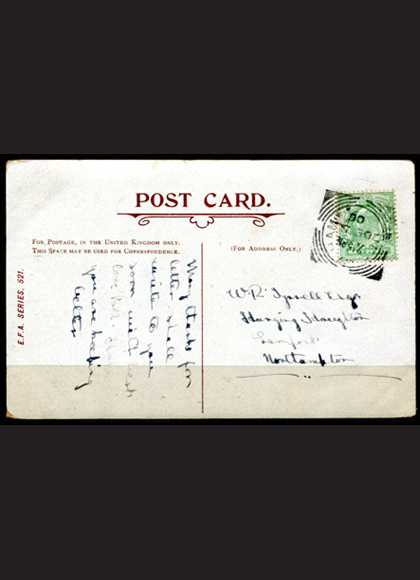 POST CARD.
FOR POSTAGE, IN THE UNITED KINGDOM ONLY.
THIS SPACE MAY BE USED FOR CORRESPONDENCE.
(FOR ADDRESS ONLY.)
E.F.A. SERIES. 521.
Many thanks for
letter shall
write to you
soon with best
love
you are keeping
better
W.R. Tyssell Esq.
Hanging Houghton
Lamport
Northampton